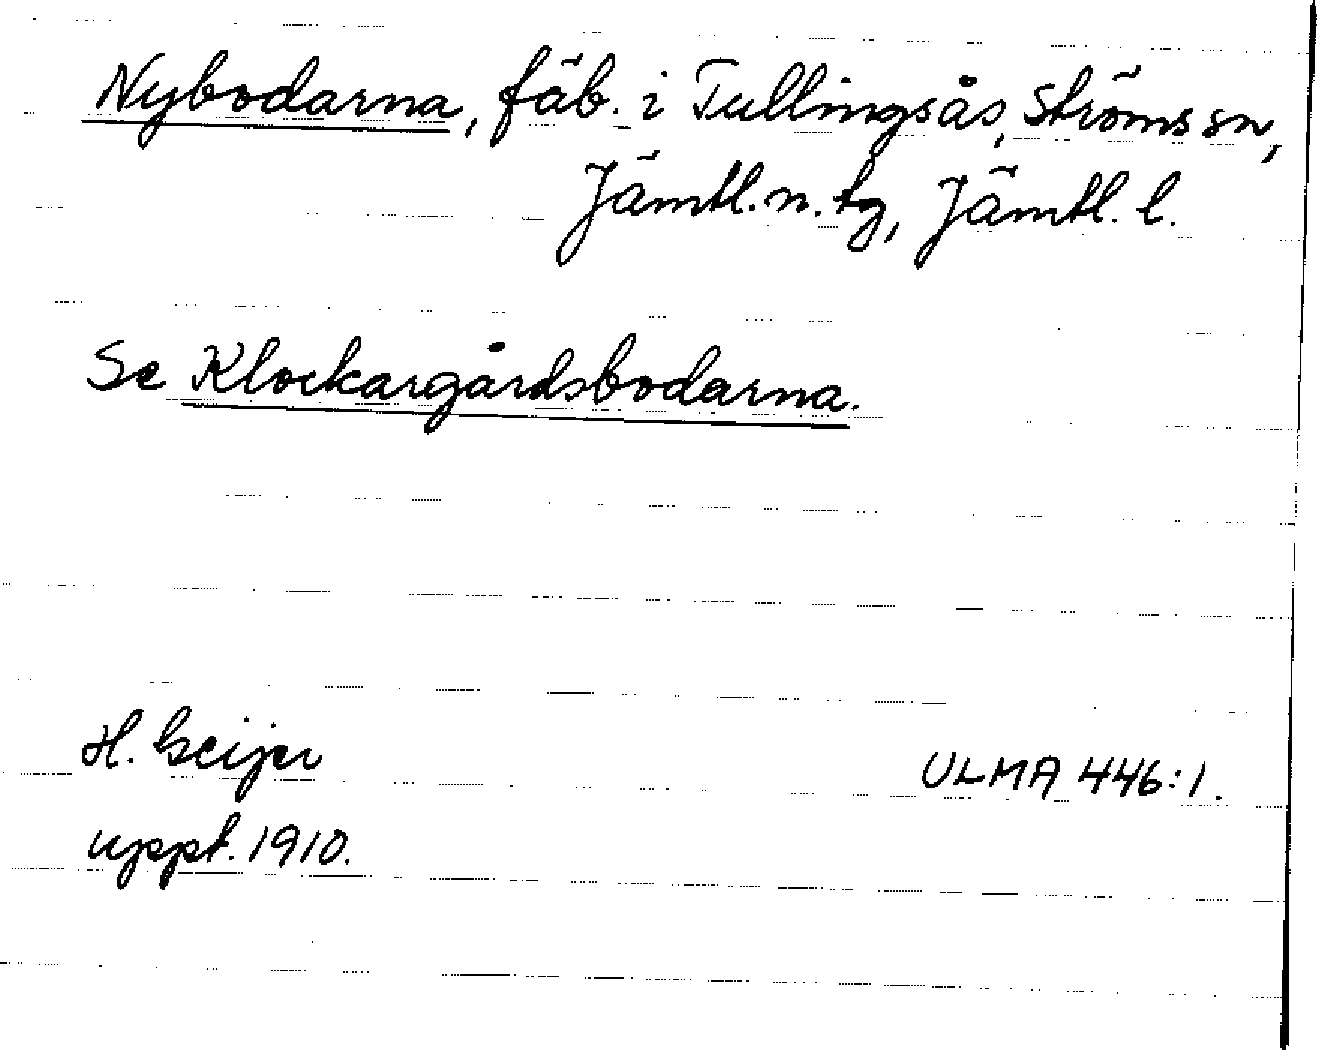 Nybodarna, fäb. i Tullingsås, Ströms sn,
Jämtl. n. tg, Jämtl. l.
Se Klockargårdsbodarna.
H. Geijer
ULMA 446:1.
uppt. 1910.